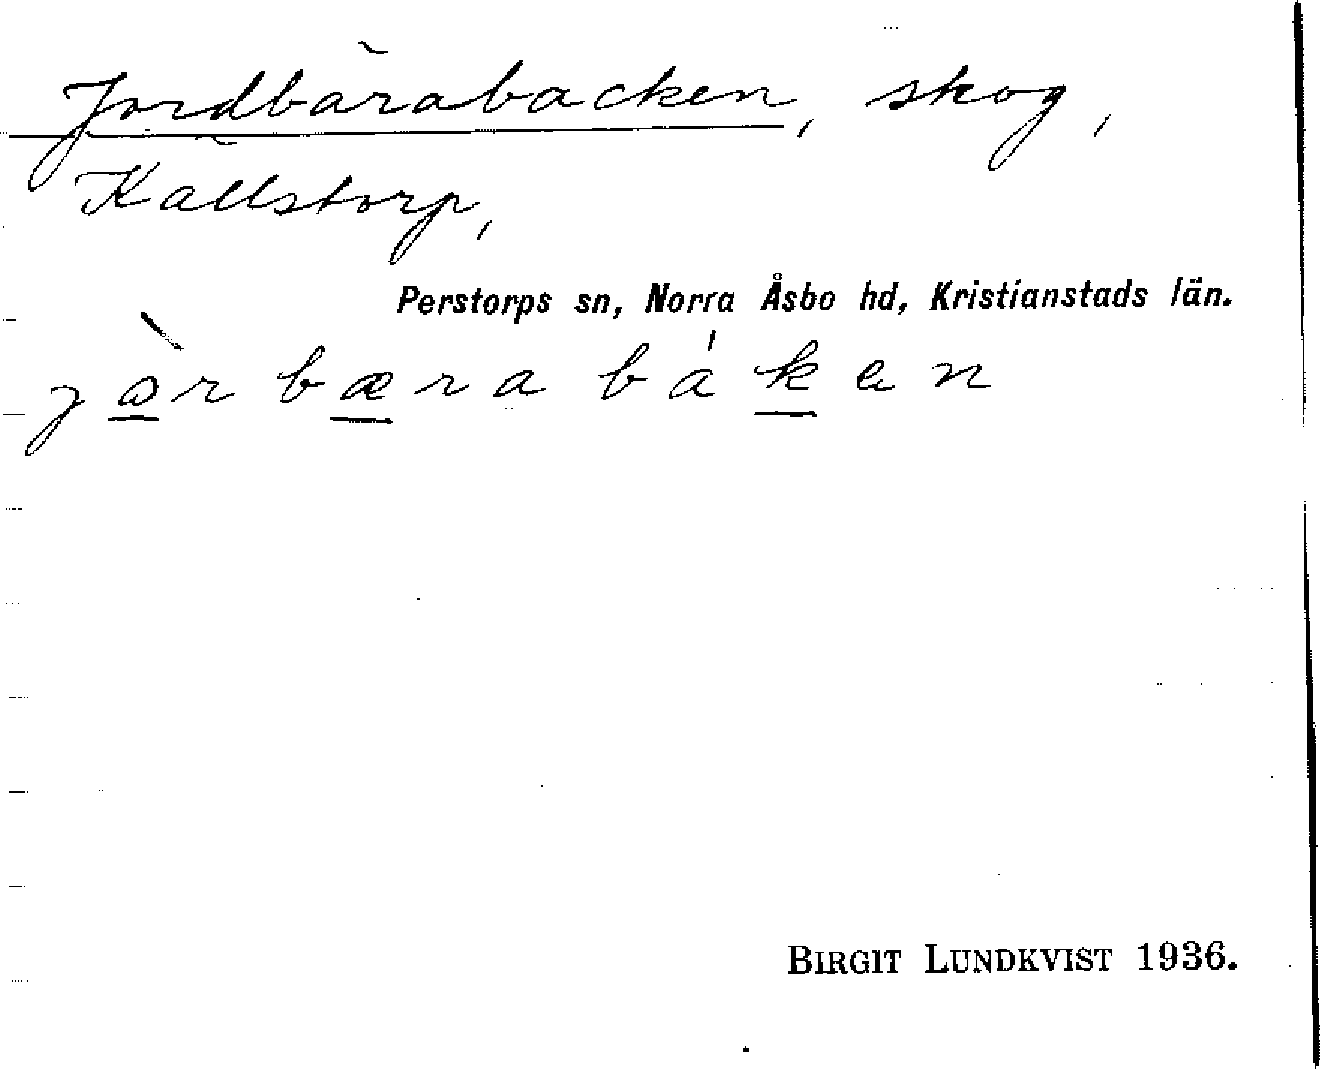 Jordbärabacken, skog,
Källstorp,
Perstorps sn, Norra Åsbo hd, Kristianstads län.
BIRGIT LUNDKVIST 1936.